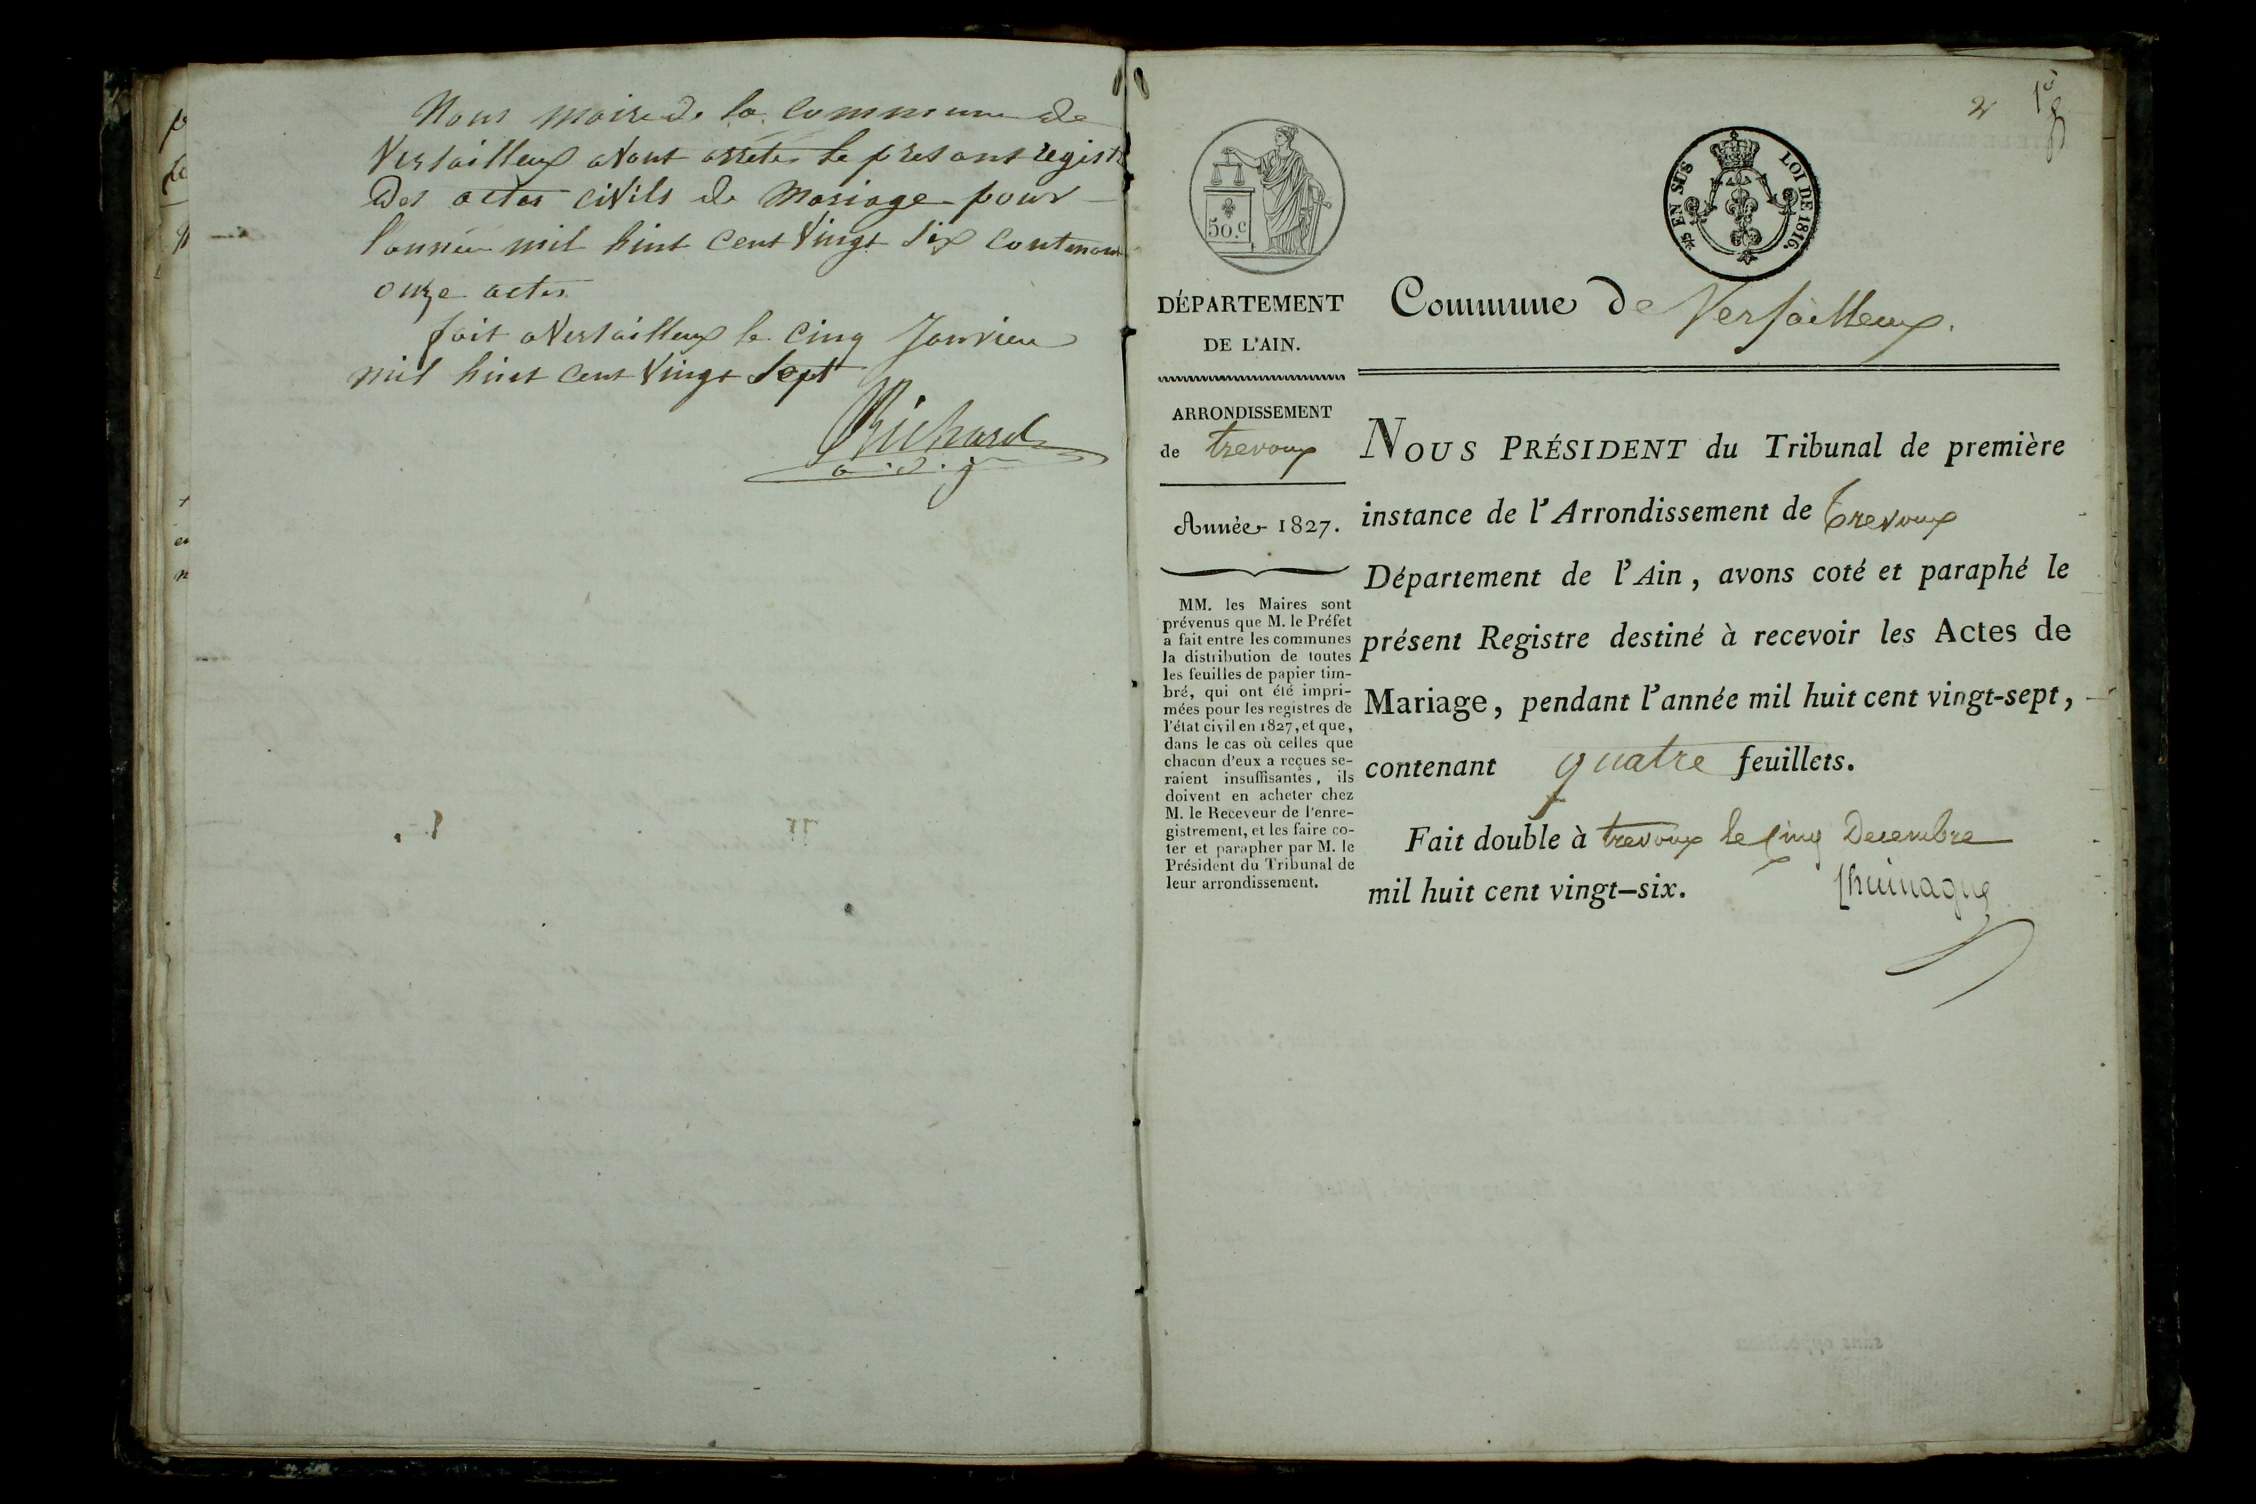 Nous maire de la commune de
Versailleux avont arrétés le presant regist
des actes civils de Mariage pour
l'année mil huit cent vingt six contenant
onze actes
fait a Versailleux le cinq Janvier
mil huit cent vingt sept
Richard
2
50.c
5c EN SUS
LOI DE 1816.
DÉPARTEMENT
DE L'AIN.
ARRONDISSEMENT
de trevoux
Année 1827.
MM. les Maires sont
prévenus que M. le Préfet
a fait entre les communes
la distribution de toutes
les feuilles de papier tim-
bré, qui ont été impri-
mées pour les registres de
l'état civil en 1827, et que,
dans le cas où celles que
chacun d'eux a reçues se-
raient insuffisantes, ils
doivent en acheter chez
M. le Receveur de l'enre-
gistrement, et les faire co-
ter et parapher par M. le
Président du Tribunal de
leur arrondissement.
Commune de Versailleux.
NOUS PRÉSIDENT du Tribunal de première
instance de l'Arrondissement de Trevoux
Département de l'Ain, avons coté et paraphé le
présent Registre destiné à recevoir les Actes de
Mariage, pendant l'année mil huit cent vingt-sept,
contenant quatre feuillets.
Fait double à trevoux le cinq Decembre
mil huit cent vingt-six.